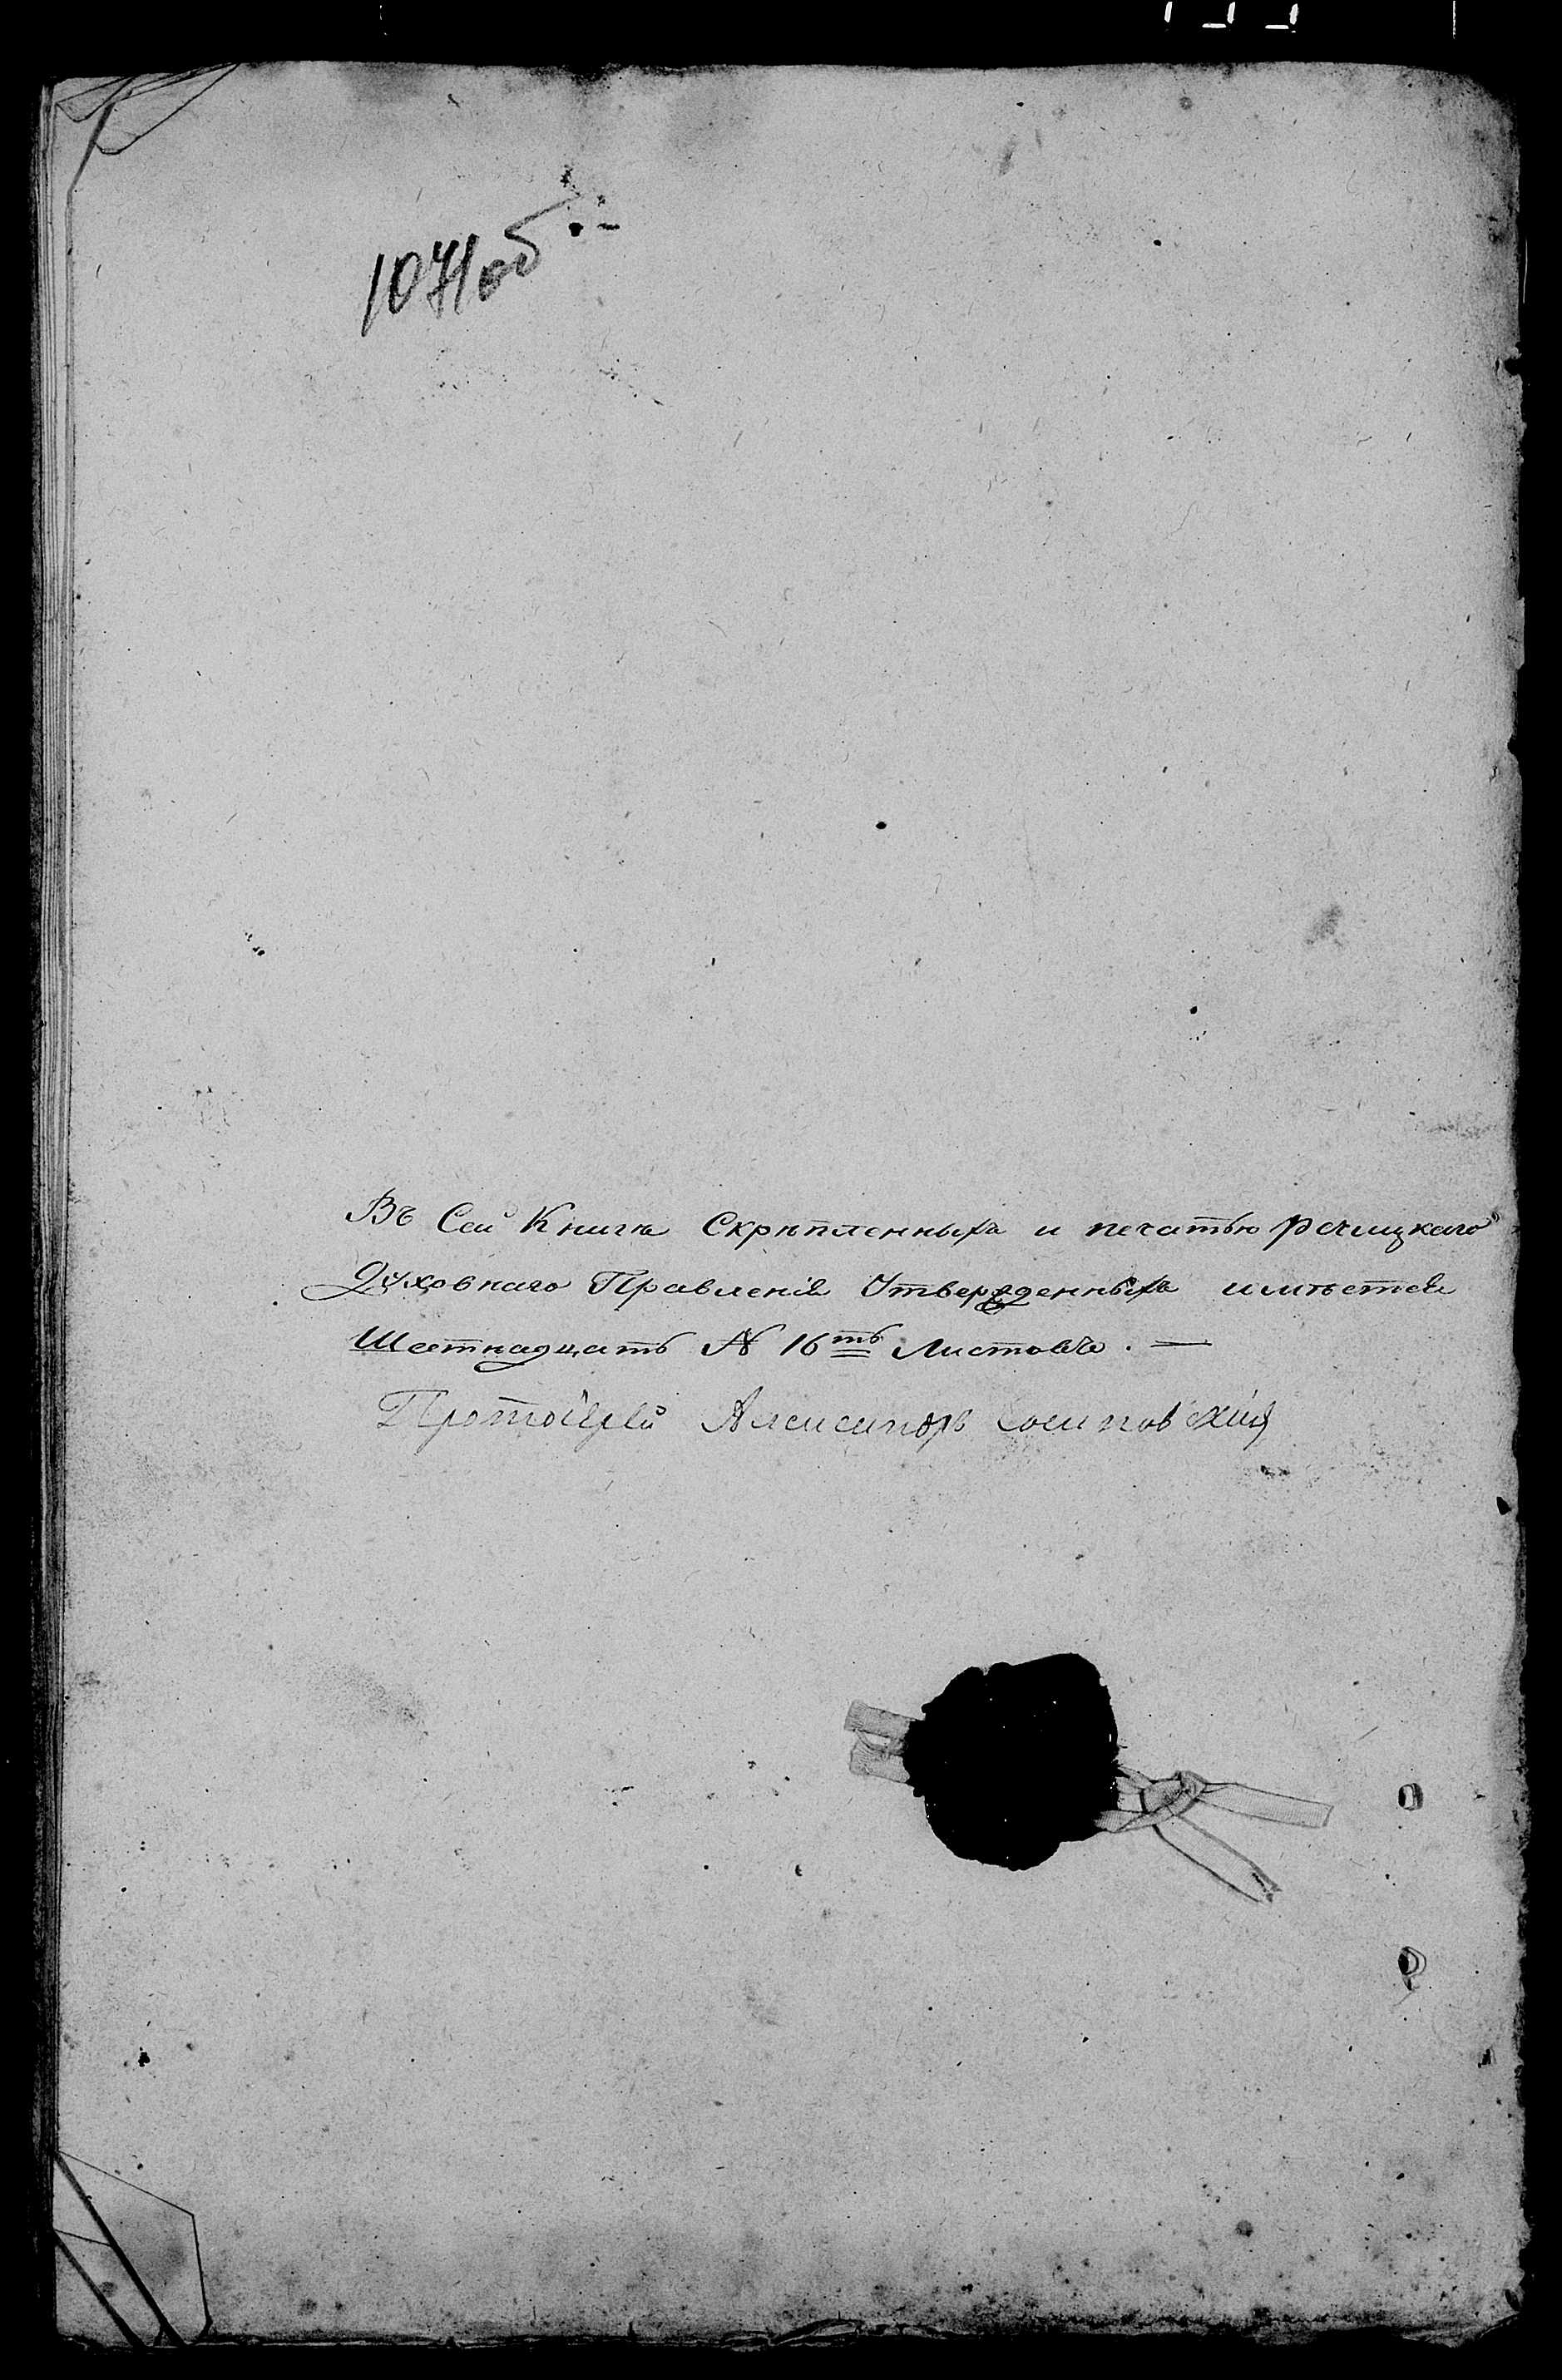 1071об
Въ Сей Книгѣ Скрѣпленныхъ и печатью Речицкаго
Духовнаго Правленія Утвержденныхъ имѣется
Шестнадцать N 16ть Листовъ. —
Протоіерей Александръ